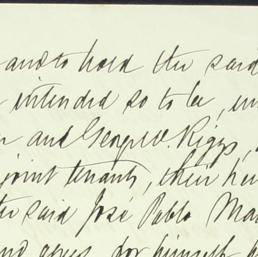 and to hold the said
intended so to be, un
and George W Riggs,
joint tenants, their hei
the said José Pablo Ma
and agree, for himself, h